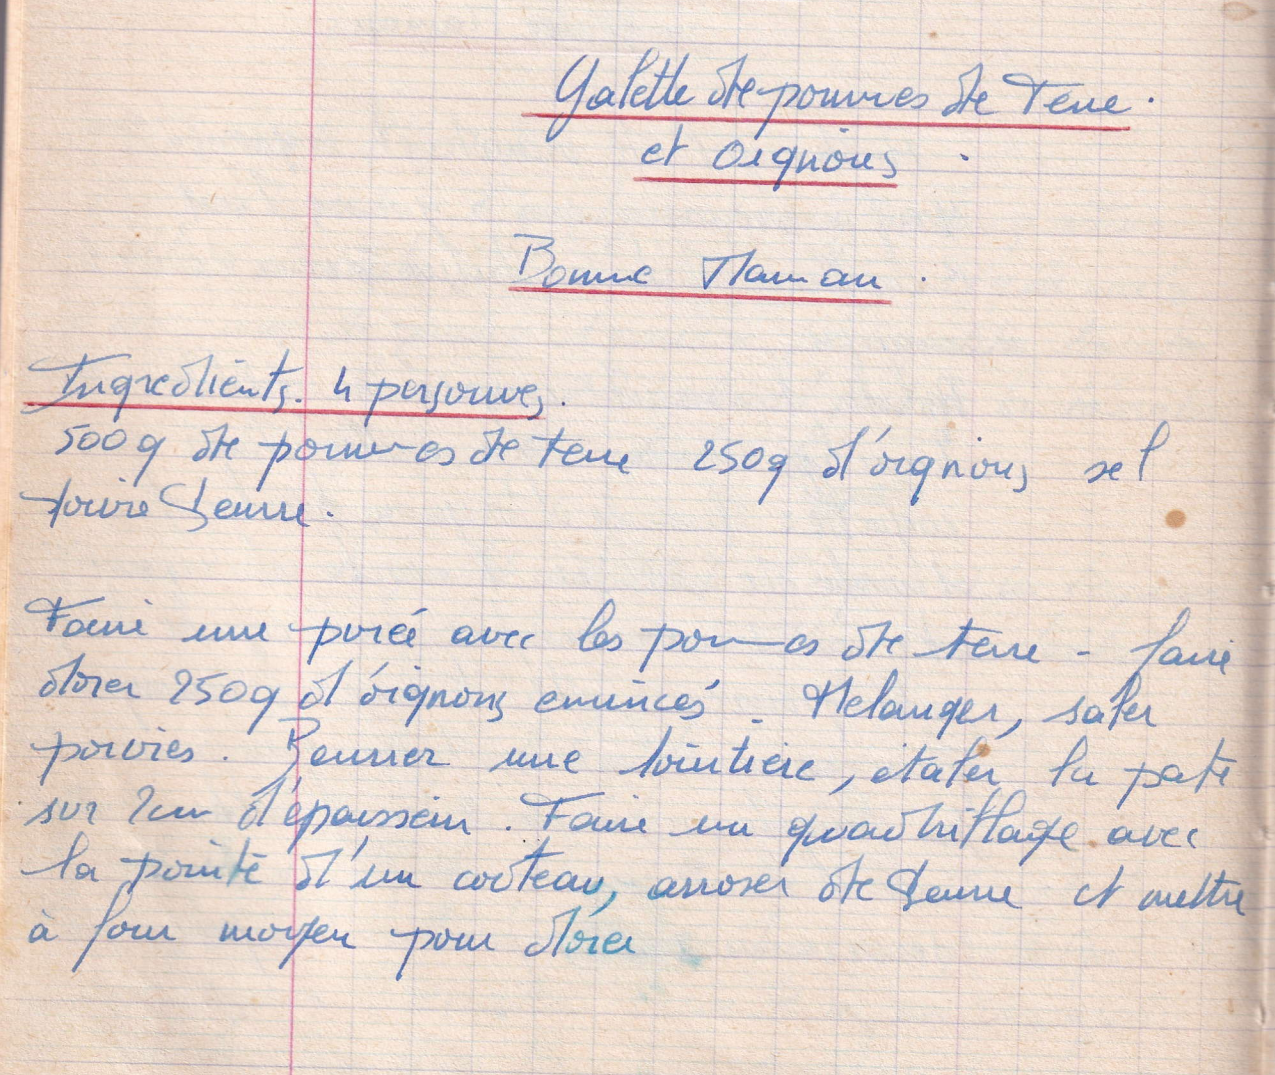 Galette de pommes de Terre.
et oignons.
Bonne Maman.
Ingredients. 4 personnes.
500g de pommes de terre 250g d'oignons sel
poivre beurre.
Faire une purée avec les pommes de terre - faire
dorer 250g d'oignons émincés - Melanger, saler
poivrer. Beurrer une tourtière, étaler la pate
sur 2cm d'épaisseur. Faire un quadrillage avec
la pointe d'un couteau, arroser de beurre et mettre
à four moyen pour dorer